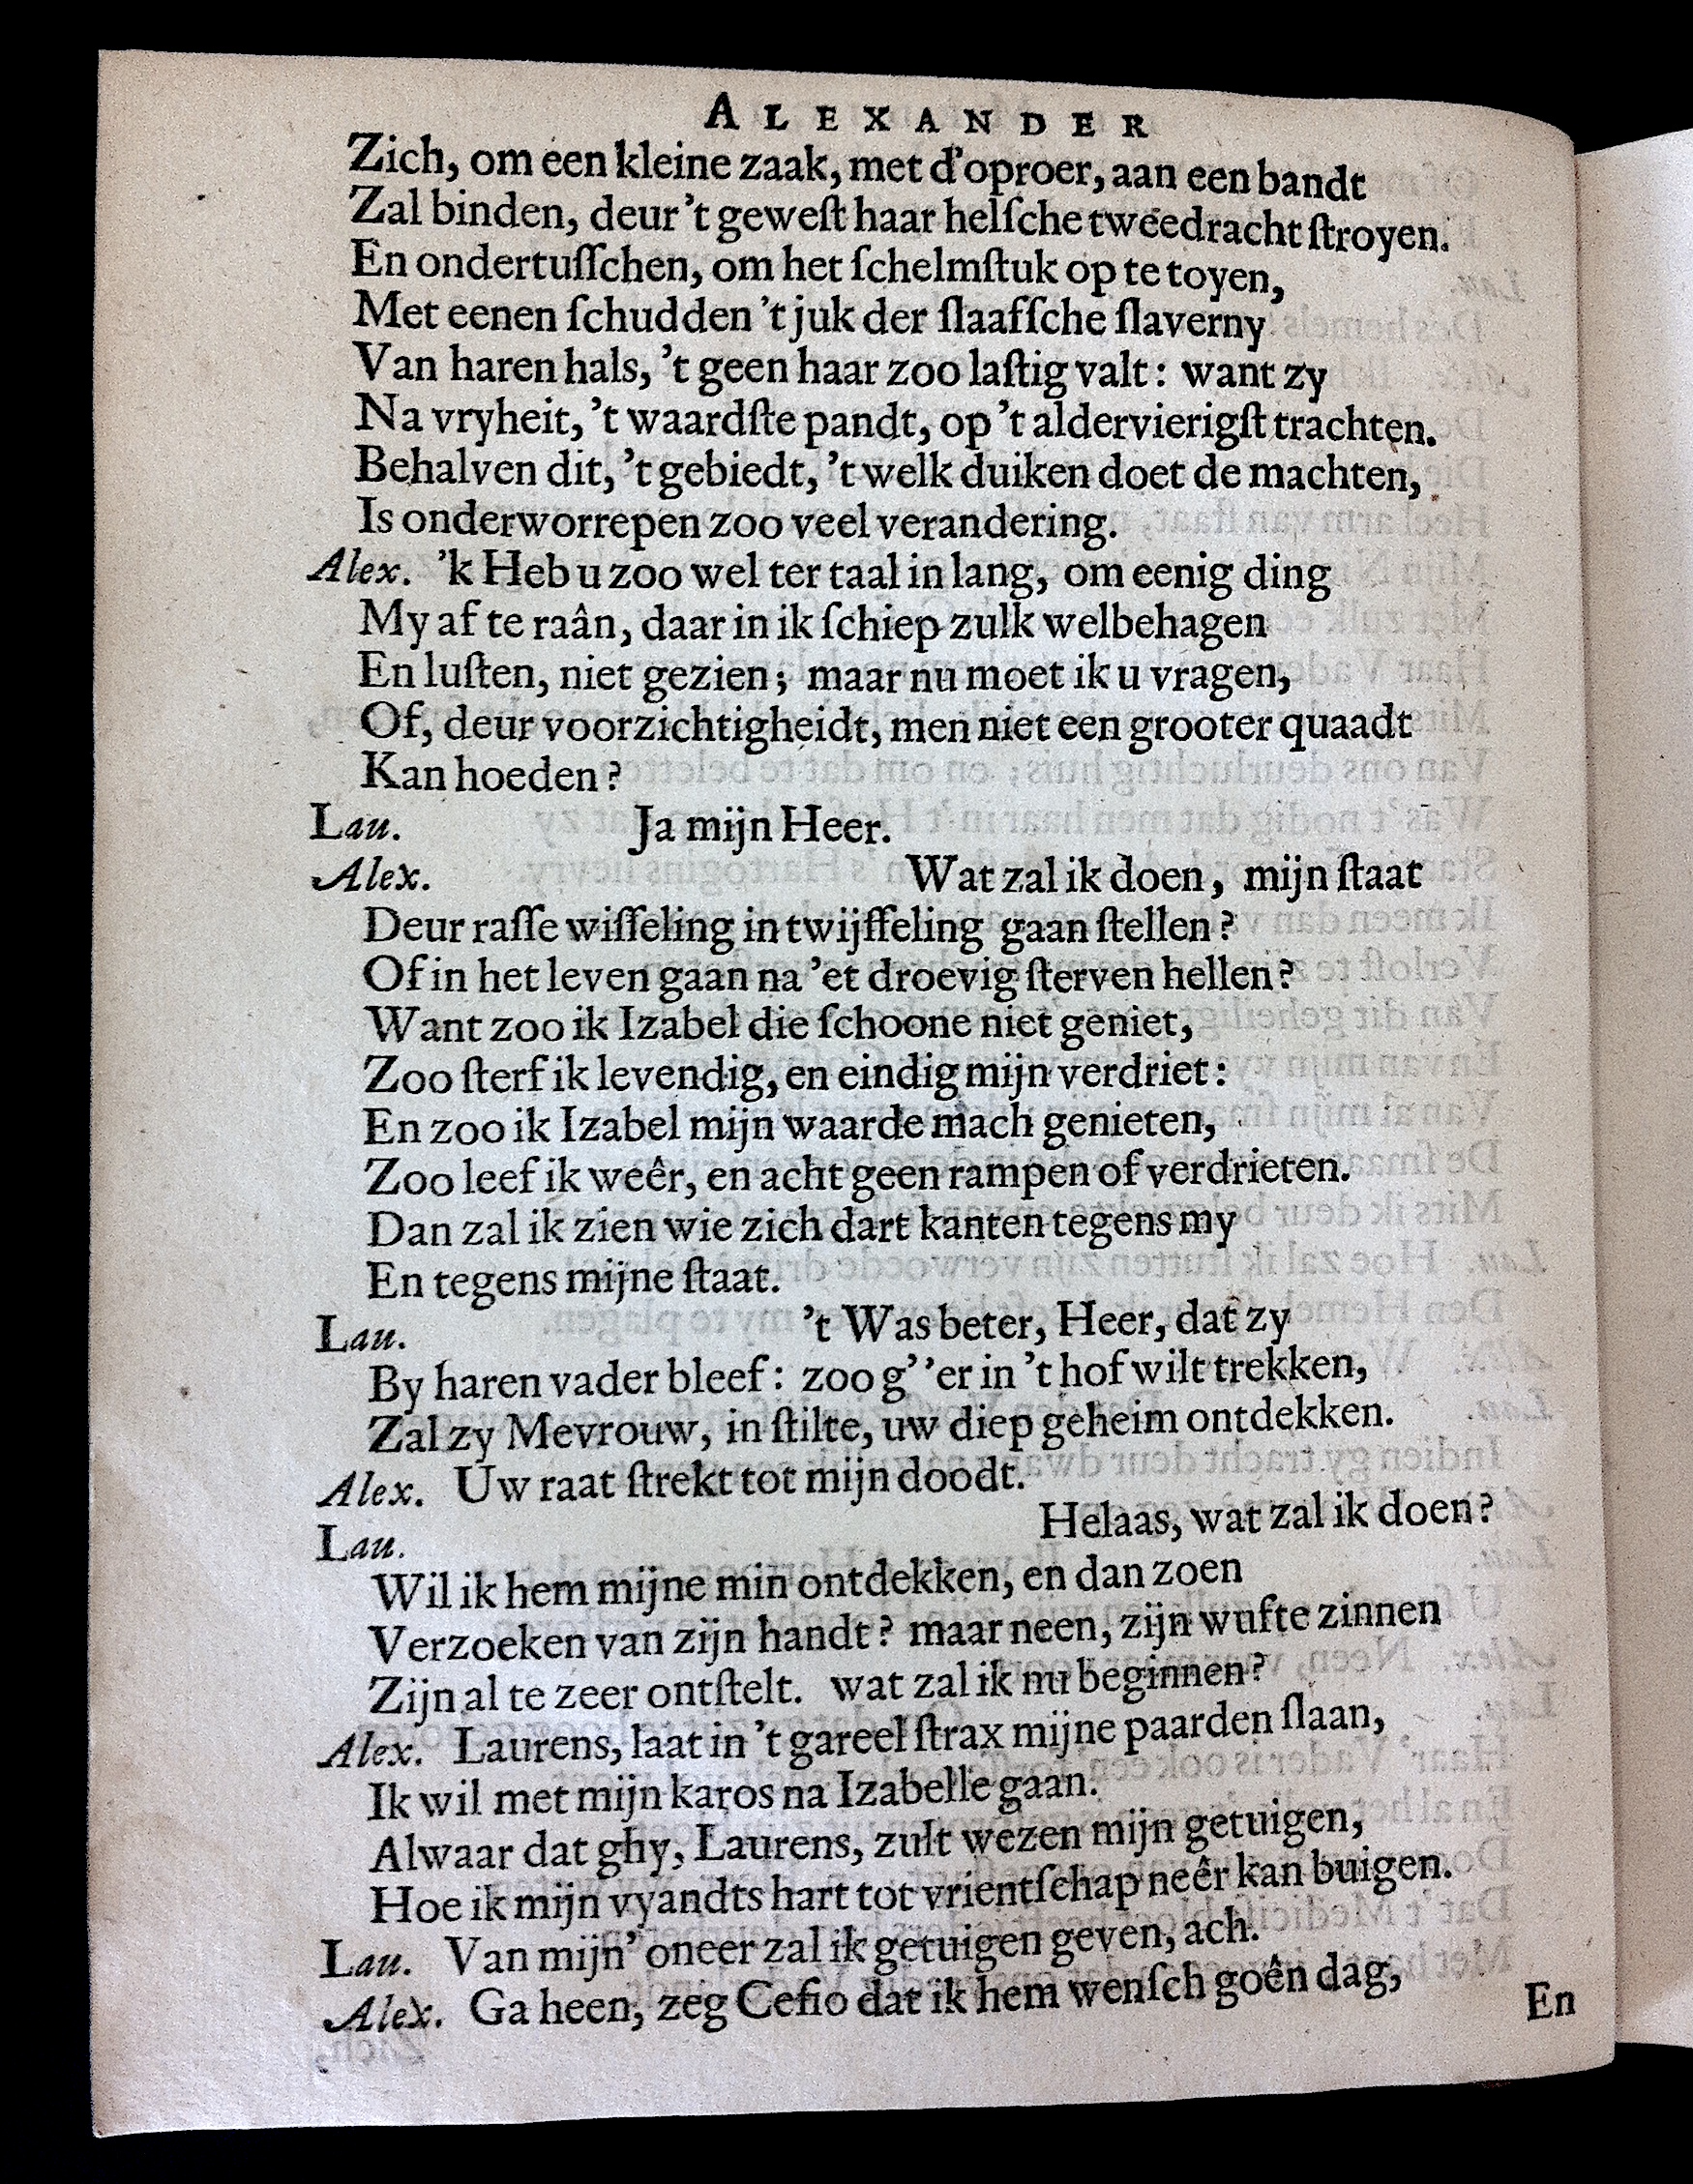 ALEXANDER
Zich, om een kleine zaak, met d'oproer, aan een bandt
Zal binden, deur 't geweſt haar helſche tweedracht ſtroyen.
En ondertuſſchen, om het ſchelmſtuk op te toyen,
Met eenen ſchudden 't juk der ſlaafſche ſlaverny
Van haren hals, 't geen haar zoo laſtig valt: want zy
Na vryheit, 't waardſte pandt, op 't aldervierigſt trachten.
Behalven dit, 't gebiedt, 't welk duiken doet de machten,
Is onderworrepen zoo veel verandering.
Alex. 'k Heb u zoo wel ter taal in lang, om eenig ding
My af te raân, daar in ik ſchiep zulk welbehagen
En luſten, niet gezien; maar nu moet ik u vragen,
Of, deur voorzichtigheidt, men niet een grooter quaadt
Kan hoeden?
Lau. Ja mijn Heer.
Alex. Wat zal ik doen, mijn ſtaat
Deur raſſe wiſſeling in twijffeling gaan ſtellen?
Of in het leven gaan na 'et droevig ſterven hellen?
Want zoo ik Izabel die ſchoone niet geniet,
Zoo ſterf ik levendig, en eindig mijn verdriet:
En zoo ik Izabel mijn waarde mach genieten,
Zoo leef ik weêr, en acht geen rampen of verdrieten.
Dan zal ik zien wie zich dart kanten tegens my
En tegens mijne ſtaat.
Lau. 't Was beter, Heer, dat zy
By haren vader bleef: zoo g' 'er in 't hof wilt trekken,
Zal zy Mevrouw, in ſtilte, uw diep geheim ontdekken.
Alex. Uw raat ſtrekt tot mijn doodt.
Lau. Helaas, wat zal ik doen?
Wil ik hem mijne min ontdekken, en dan zoen
Verzoeken van zijn handt? maar neen, zijn wufte zinnen
Zijn al te zeer ontſtelt. wat zal ik nu beginnen?
Alex. Laurens, laat in 't gareel ſtrax mijne paarden ſlaan,
Ik wil met mijn karos na Izabelle gaan.
Alwaar dat ghy, Laurens, zult wezen mijn getuigen,
Hoe ik mijn vyandts hart tot vrientſchap neêr kan buigen.
Lau. Van mijn' oneer zal ik getuigen geven, ach.
Alex. Ga heen, zeg Cefio dat ik hem wenſch goên dag,
En